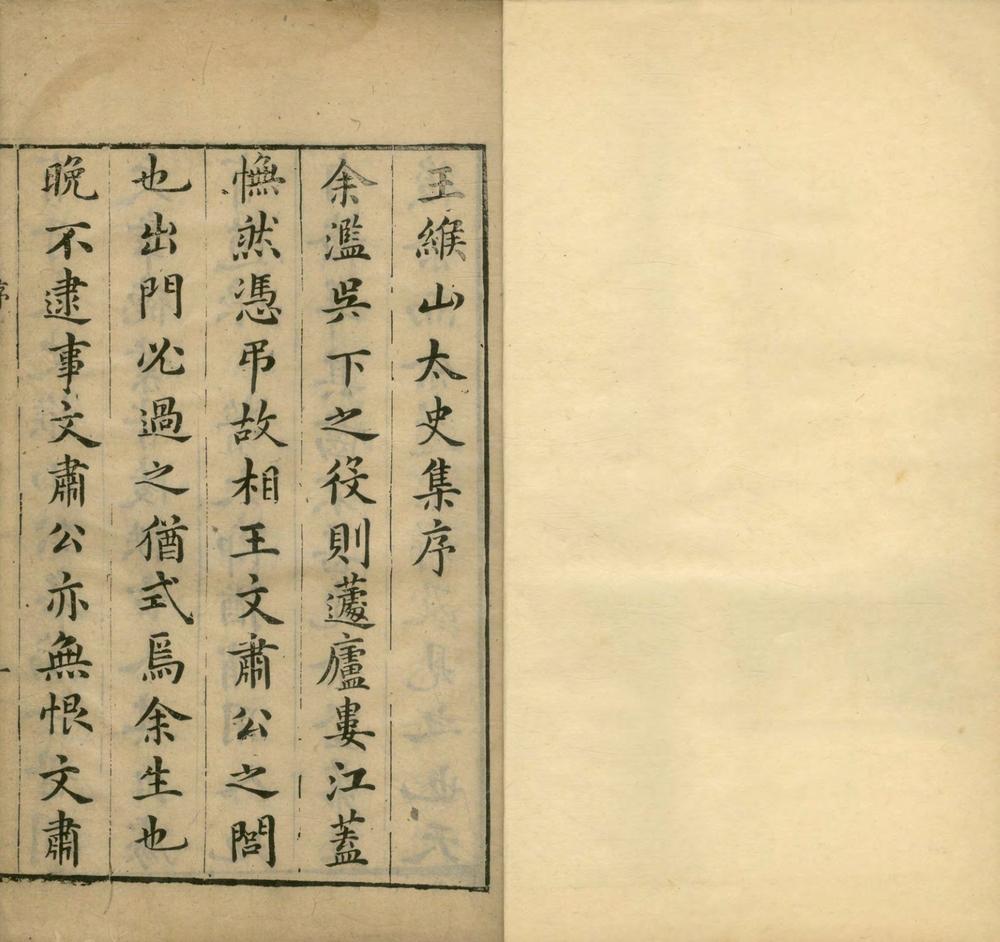 王緱山太史集序
余濫吳下之役則蘧廬婁江蓋
憮然憑弔故相王文肅公之閭
也出門必過之猶式焉余生也
晚不逮事文肅公亦無恨文肅
序
一